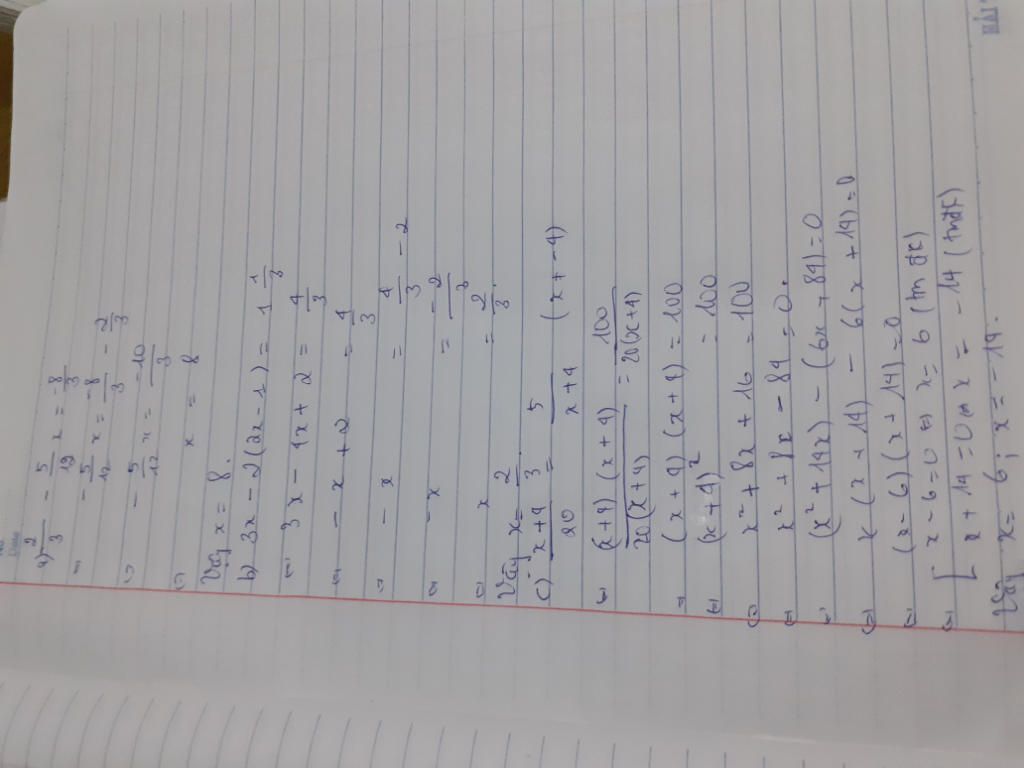 a) 2/3 - 5/12 x = -8/3
⇔ - 5/12 x = -8/3 - 2/3
⇔ - 5/12 x = -10/3
⇔ x = 8
Vậy x = 8.
b) 3x - 2(2x - 1) = 1 1/3
⇔ 3x - 4x + 2 = 4/3
⇔ - x + 2 = 4/3
⇔ - x = 4/3 - 2
⇔ -x = -2/3
⇔ x = 2/3.
Vậy x = 2/3
c) (x+4)/20 = 5/(x+4) (x ≠ -4)
⇔ (x+4)(x+4)/20(x+4) = 100/20(x+4)
⇒ (x+4)(x+4) = 100
⇔ (x+4)² = 100
⇔ x² + 8x + 16 = 100
⇔ x² + 8x - 84 = 0.
⇔ (x² + 14x) - (6x + 84) = 0
⇔ x(x + 14) - 6(x + 14) = 0
⇔ (x - 6)(x + 14) = 0
⇔ [ x - 6 = 0 ⇔ x = 6 (tmđk)
x + 14 = 0 ⇔ x = -14 (tmđk)
Vậy x = 6; x = -14.